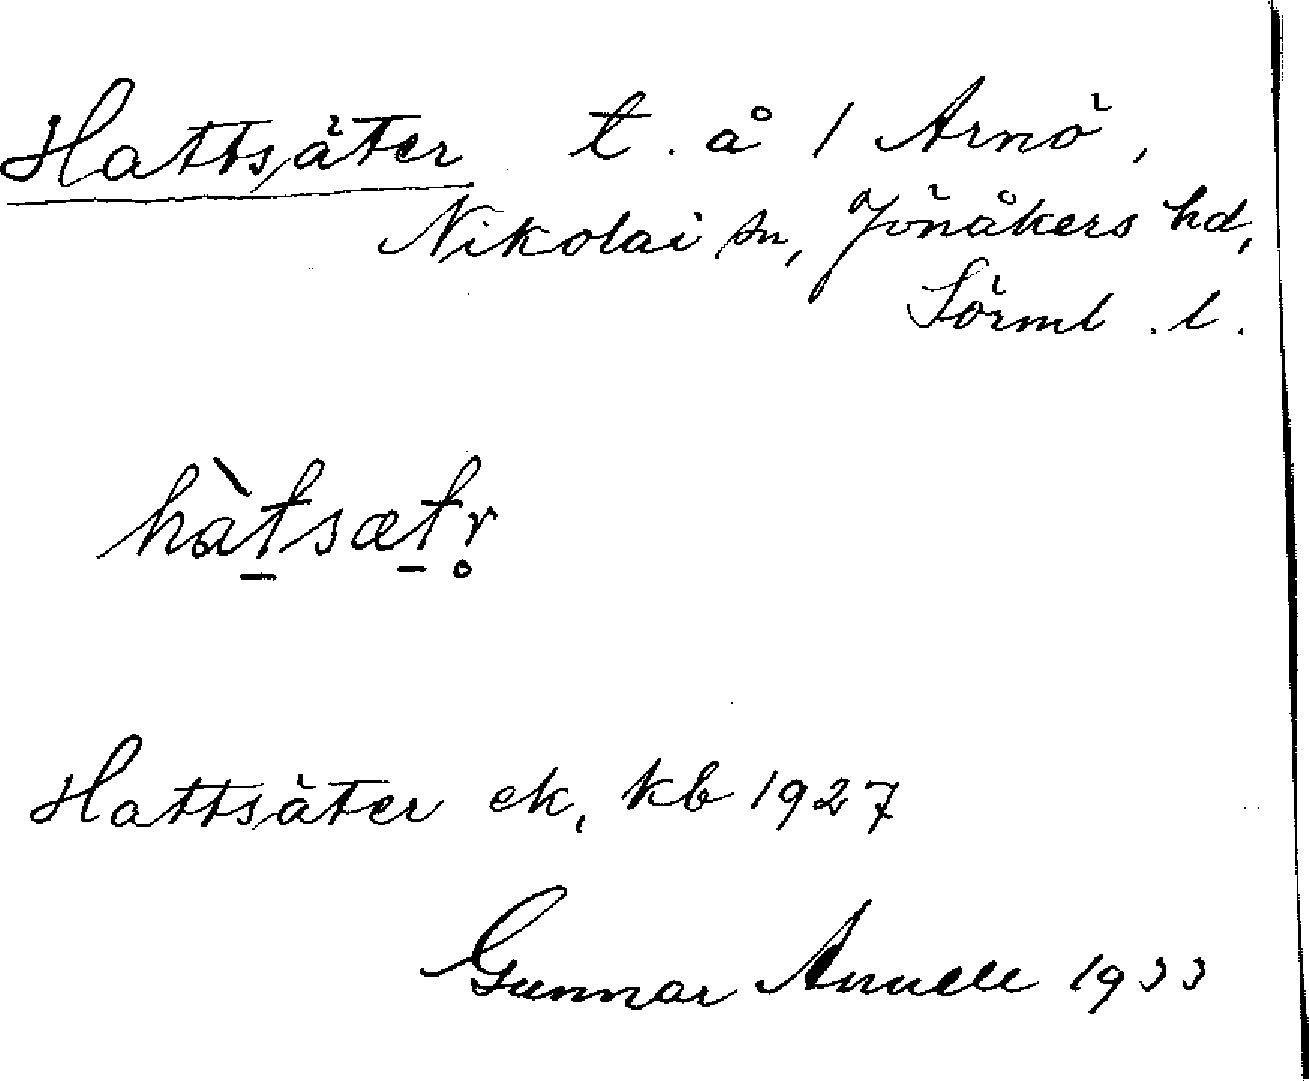 Hattsäter t. å / Arnö,
Nikolai sn, Jönåkers hd,
Sörml. l.
hàt̠sæt̠r̥
Hattsäter ek, kb 1927
Gunnar Annell 1933